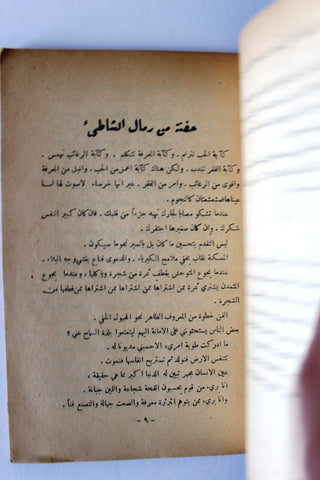 حفنة من رمال الشاطىء
كآبة الحب تترنم . وكآبة المعرفة تتكلم . وكآبة الرغائب تهمس .
وكآبة الفقر تندب . ولكن هناك كآبة اعمق من الحب . وانبل من المعرفة
واقوى من الرغائب . وامر من الفقر . غير انها خرساء لا صوت لها اما
عيناها فمشعشعتان كالنجوم .
عندما تشكو مصابا لجارك تهبه جزءاً من قلبك . فان كان كبير النفس
شكرك . وان كان صغيرها احتقرك .
ليس التقدم بتحسين ما كان بل بالسير نحو ما سيكون .
المسكنة نقاب يخفي ملامح الكبرياء . والدعوى قناع يغشي وجه البلاء .
عندما يجوع المتوحش يقطف ثمرة من شجرة ويأكلها . وعندما يجوع
المتمدن يشتري ثمرة ممن اشتراها ممن اشتراها ممن اشتراها ممن قطفها من
الشجرة .
الفن خطوة من المعروف الظاهر نحو المجهول الخفي .
بعض الناس يستحثونني على الامانة اليهم ليتمتعوا بلذة السماح عني ؟
ما ادركت طوية امرىء الا حسبني مديوناً له .
تتنفس الارض فنولد ثم تستريح انفاسها فنموت .
عين الانسان مجهر تبين له الدنيا اكبر مما في حقيقة .
انا برىء من قوم يحسبون القحة شجاعة واللين جبانة .
وانا برىء ممن يتوهم الثرثرة معرفة والصمت جهالة والتصنع فناً .
- ٩ -